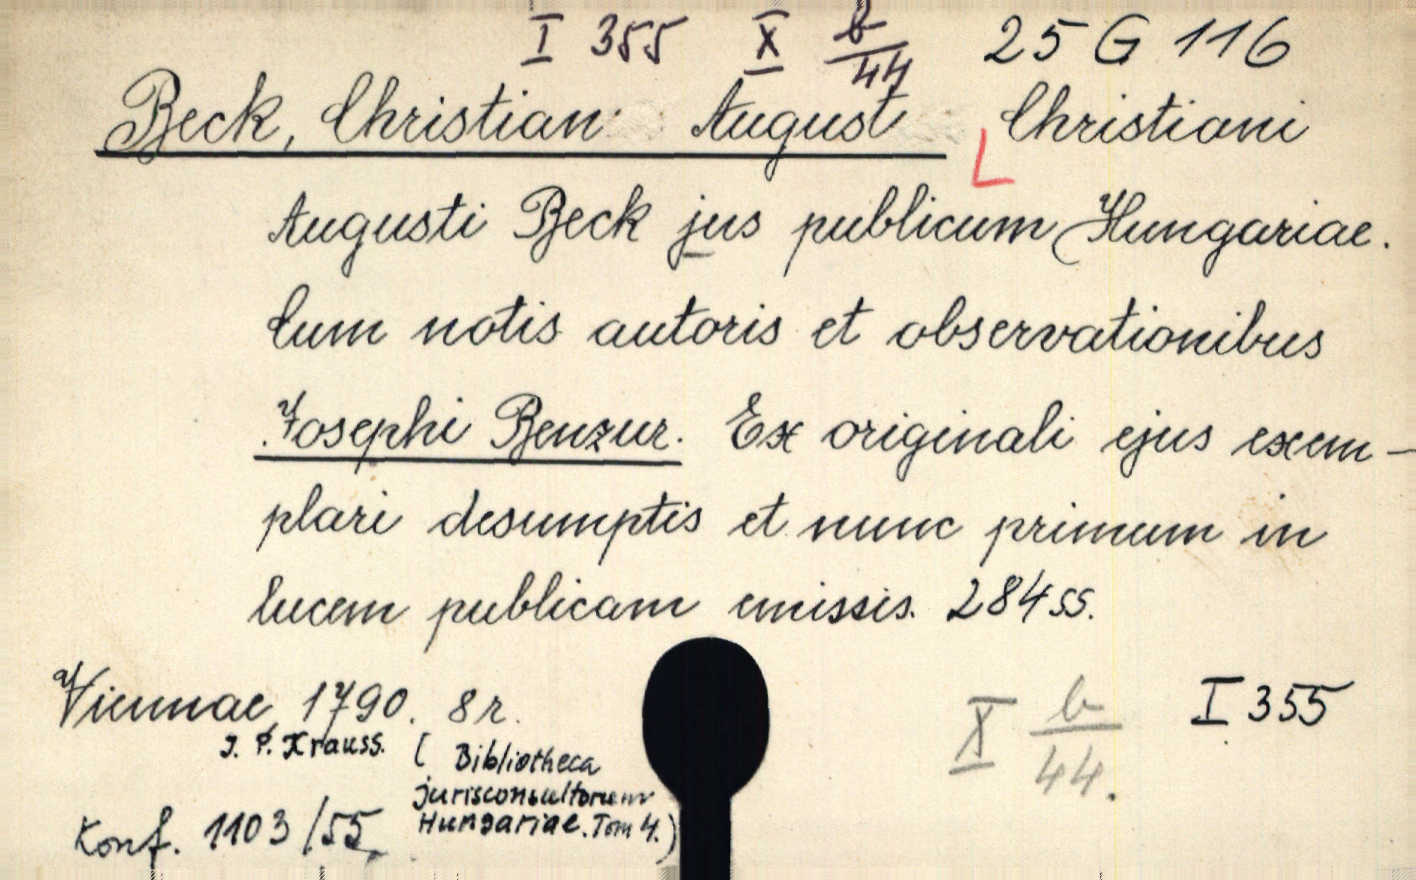 I 355 X b/44 25 G 116
Beck, Christian August Christiani
Augusti Beck jus publicum Hungariae.
Cum notis autoris et observationibus
Josephi Benzur. Ex originali ejus exem-
plari desumptis et nunc primum in
lucem publicam emissis. 284 ss.
Viennae, 1790. 8r.
J. P. Krauss. (Bibliotheca
jurisconsultorum
Hungariae. Tom 4.)
X b/44. I 355
Konf. 1103/55